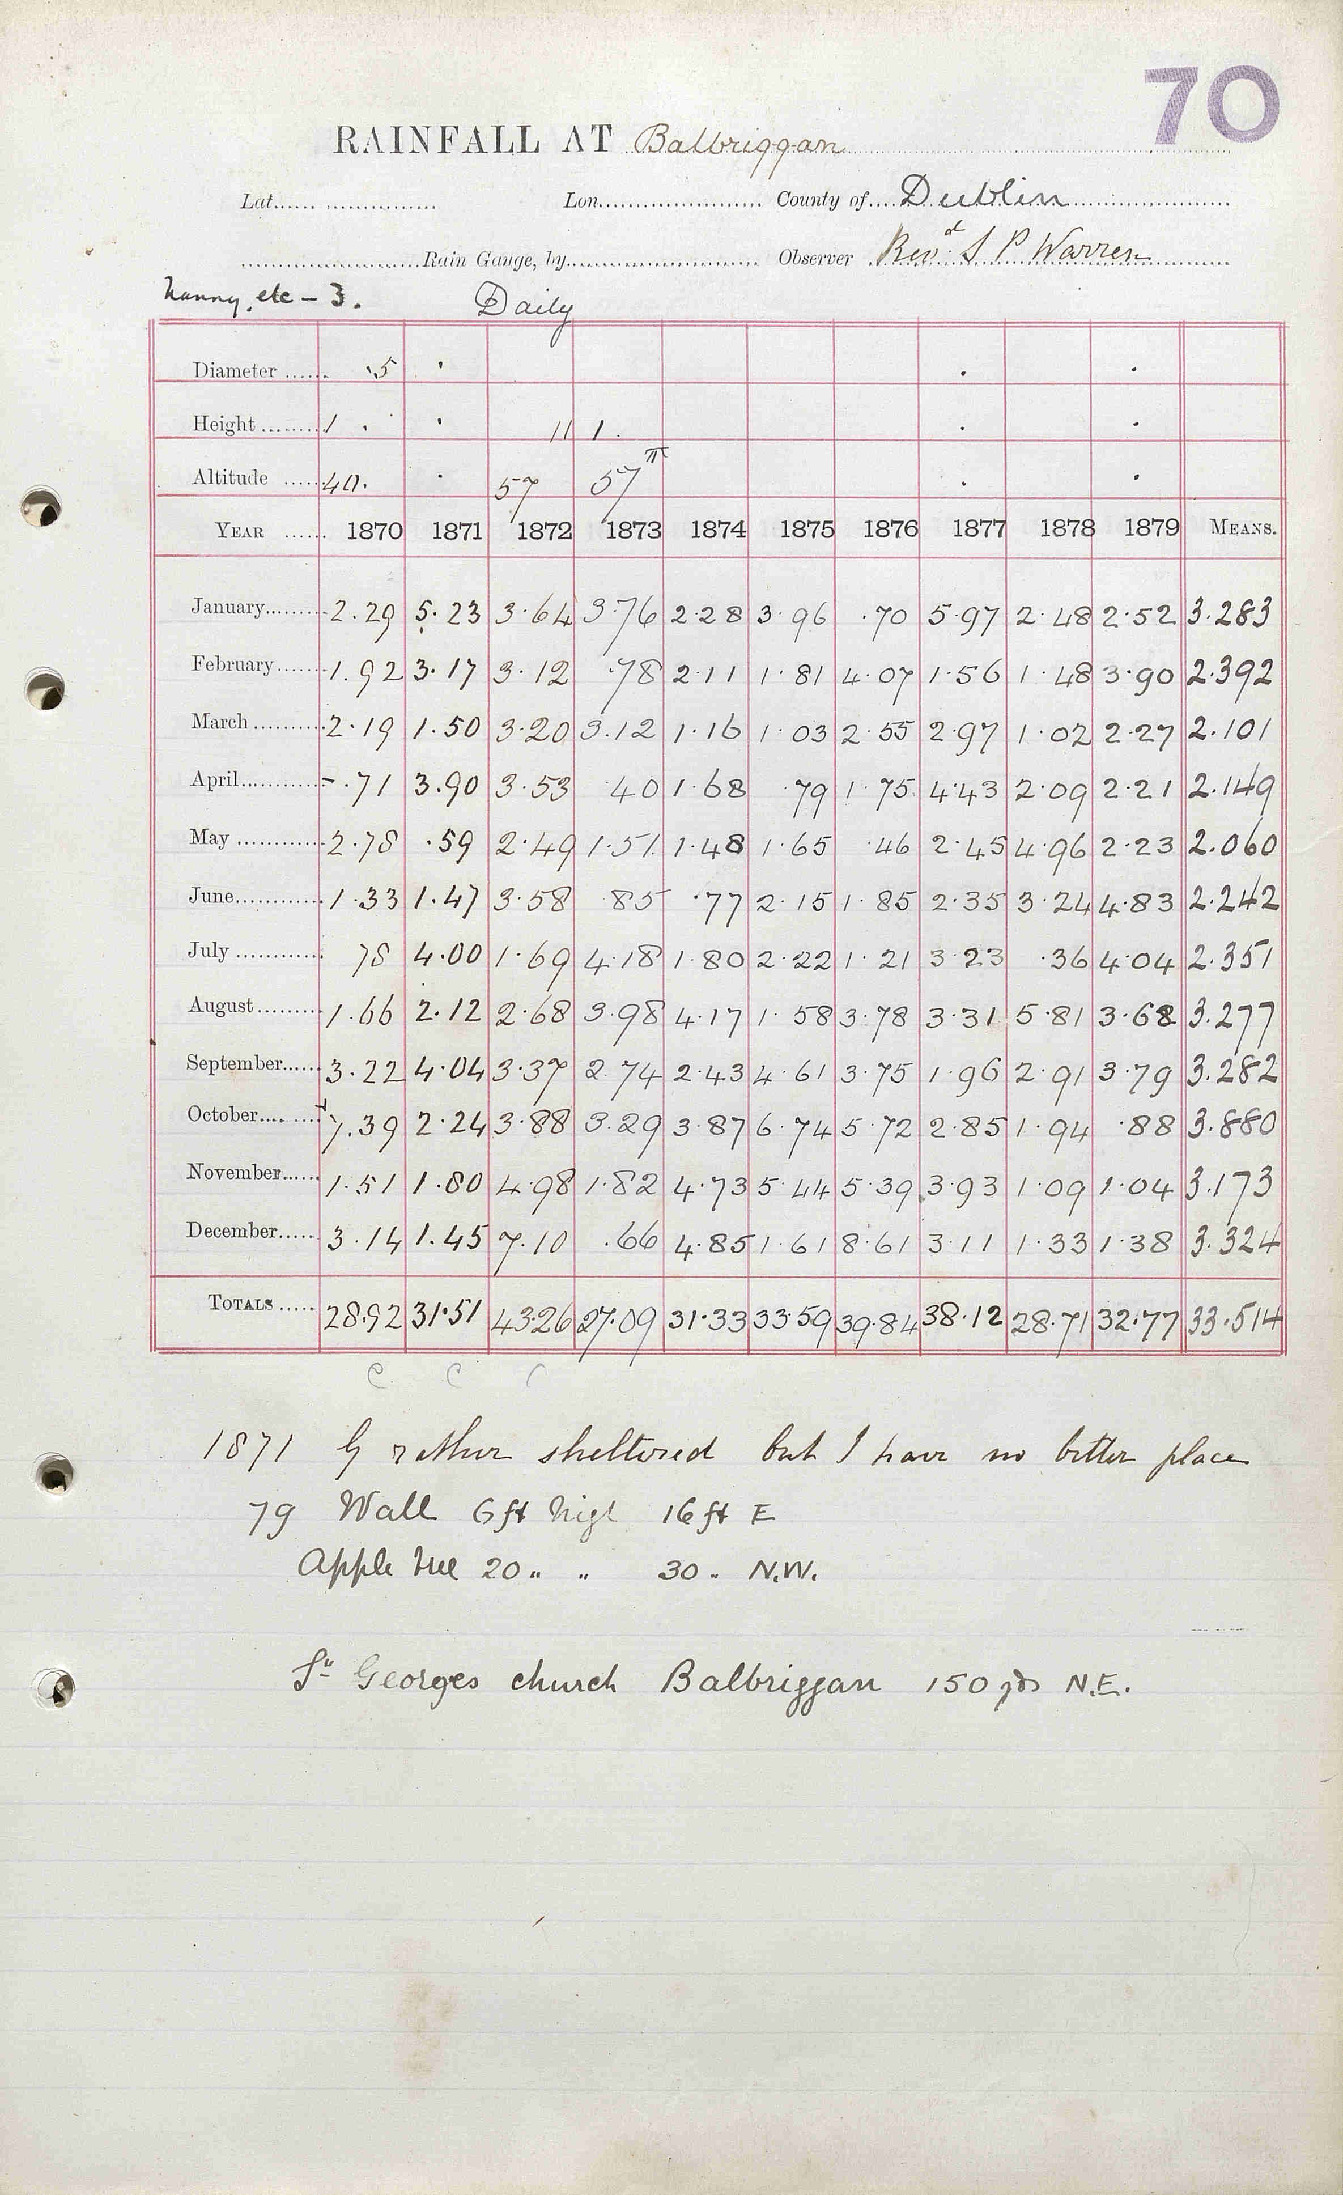 70
RAINFALL AT Balbriggan
Lat. Lon. County of Dublin
Rain Gauge, by Observer Revd S P Warren
Nanny, etc - 3. Daily
Diameter .5
Height 1 11 1
Altitude 40. 57 57
YEAR 1870 1871 1872 1873 1874 1875 1876 1877 1878 1879 MEANS.
January 2.29 5.23 3.64 3.76 2.28 3.96 .70 5.97 2.48 2.52 3.283
February 1.92 3.17 3.12 .78 2.11 1.81 4.07 1.56 1.48 3.90 2.392
March 2.19 1.50 3.20 3.12 1.16 1.03 2.55 2.97 1.02 2.27 2.101
April .71 3.90 3.53 40 1.68 .79 1.75 4.43 2.09 2.21 2.149
May 2.78 .59 2.49 1.51 1.48 1.65 .46 2.45 4.96 2.23 2.060
June 1.33 1.47 3.58 .85 .77 2.15 1.85 2.35 3.24 4.83 2.242
July 78 4.00 1.69 4.18 1.80 2.22 1.21 3.23 .36 4.04 2.351
August 1.66 2.12 2.68 3.98 4.17 1.58 3.78 3.31 5.81 3.68 3.277
September 3.22 4.04 3.37 2.74 2.43 4.61 3.75 1.96 2.91 3.79 3.282
October 7.39 2.24 3.88 3.29 3.87 6.74 5.72 2.85 1.94 .88 3.880
November 1.51 1.80 4.98 1.82 4.73 5.44 5.39 3.93 1.09 1.04 3.173
December 3.14 1.45 7.10 .66 4.85 1.61 8.61 3.11 1.33 1.38 3.324
TOTALS 28.92 31.51 43.26 27.09 31.33 33.59 39.84 38.12 28.71 32.77 33.514
C C C
1871 G rather sheltered but I have no better place
79 Wall 6 ft high 16 ft E
Apple tree 20 " " 30 " N.W.
St Georges church Balbriggan 150 yds N.E.